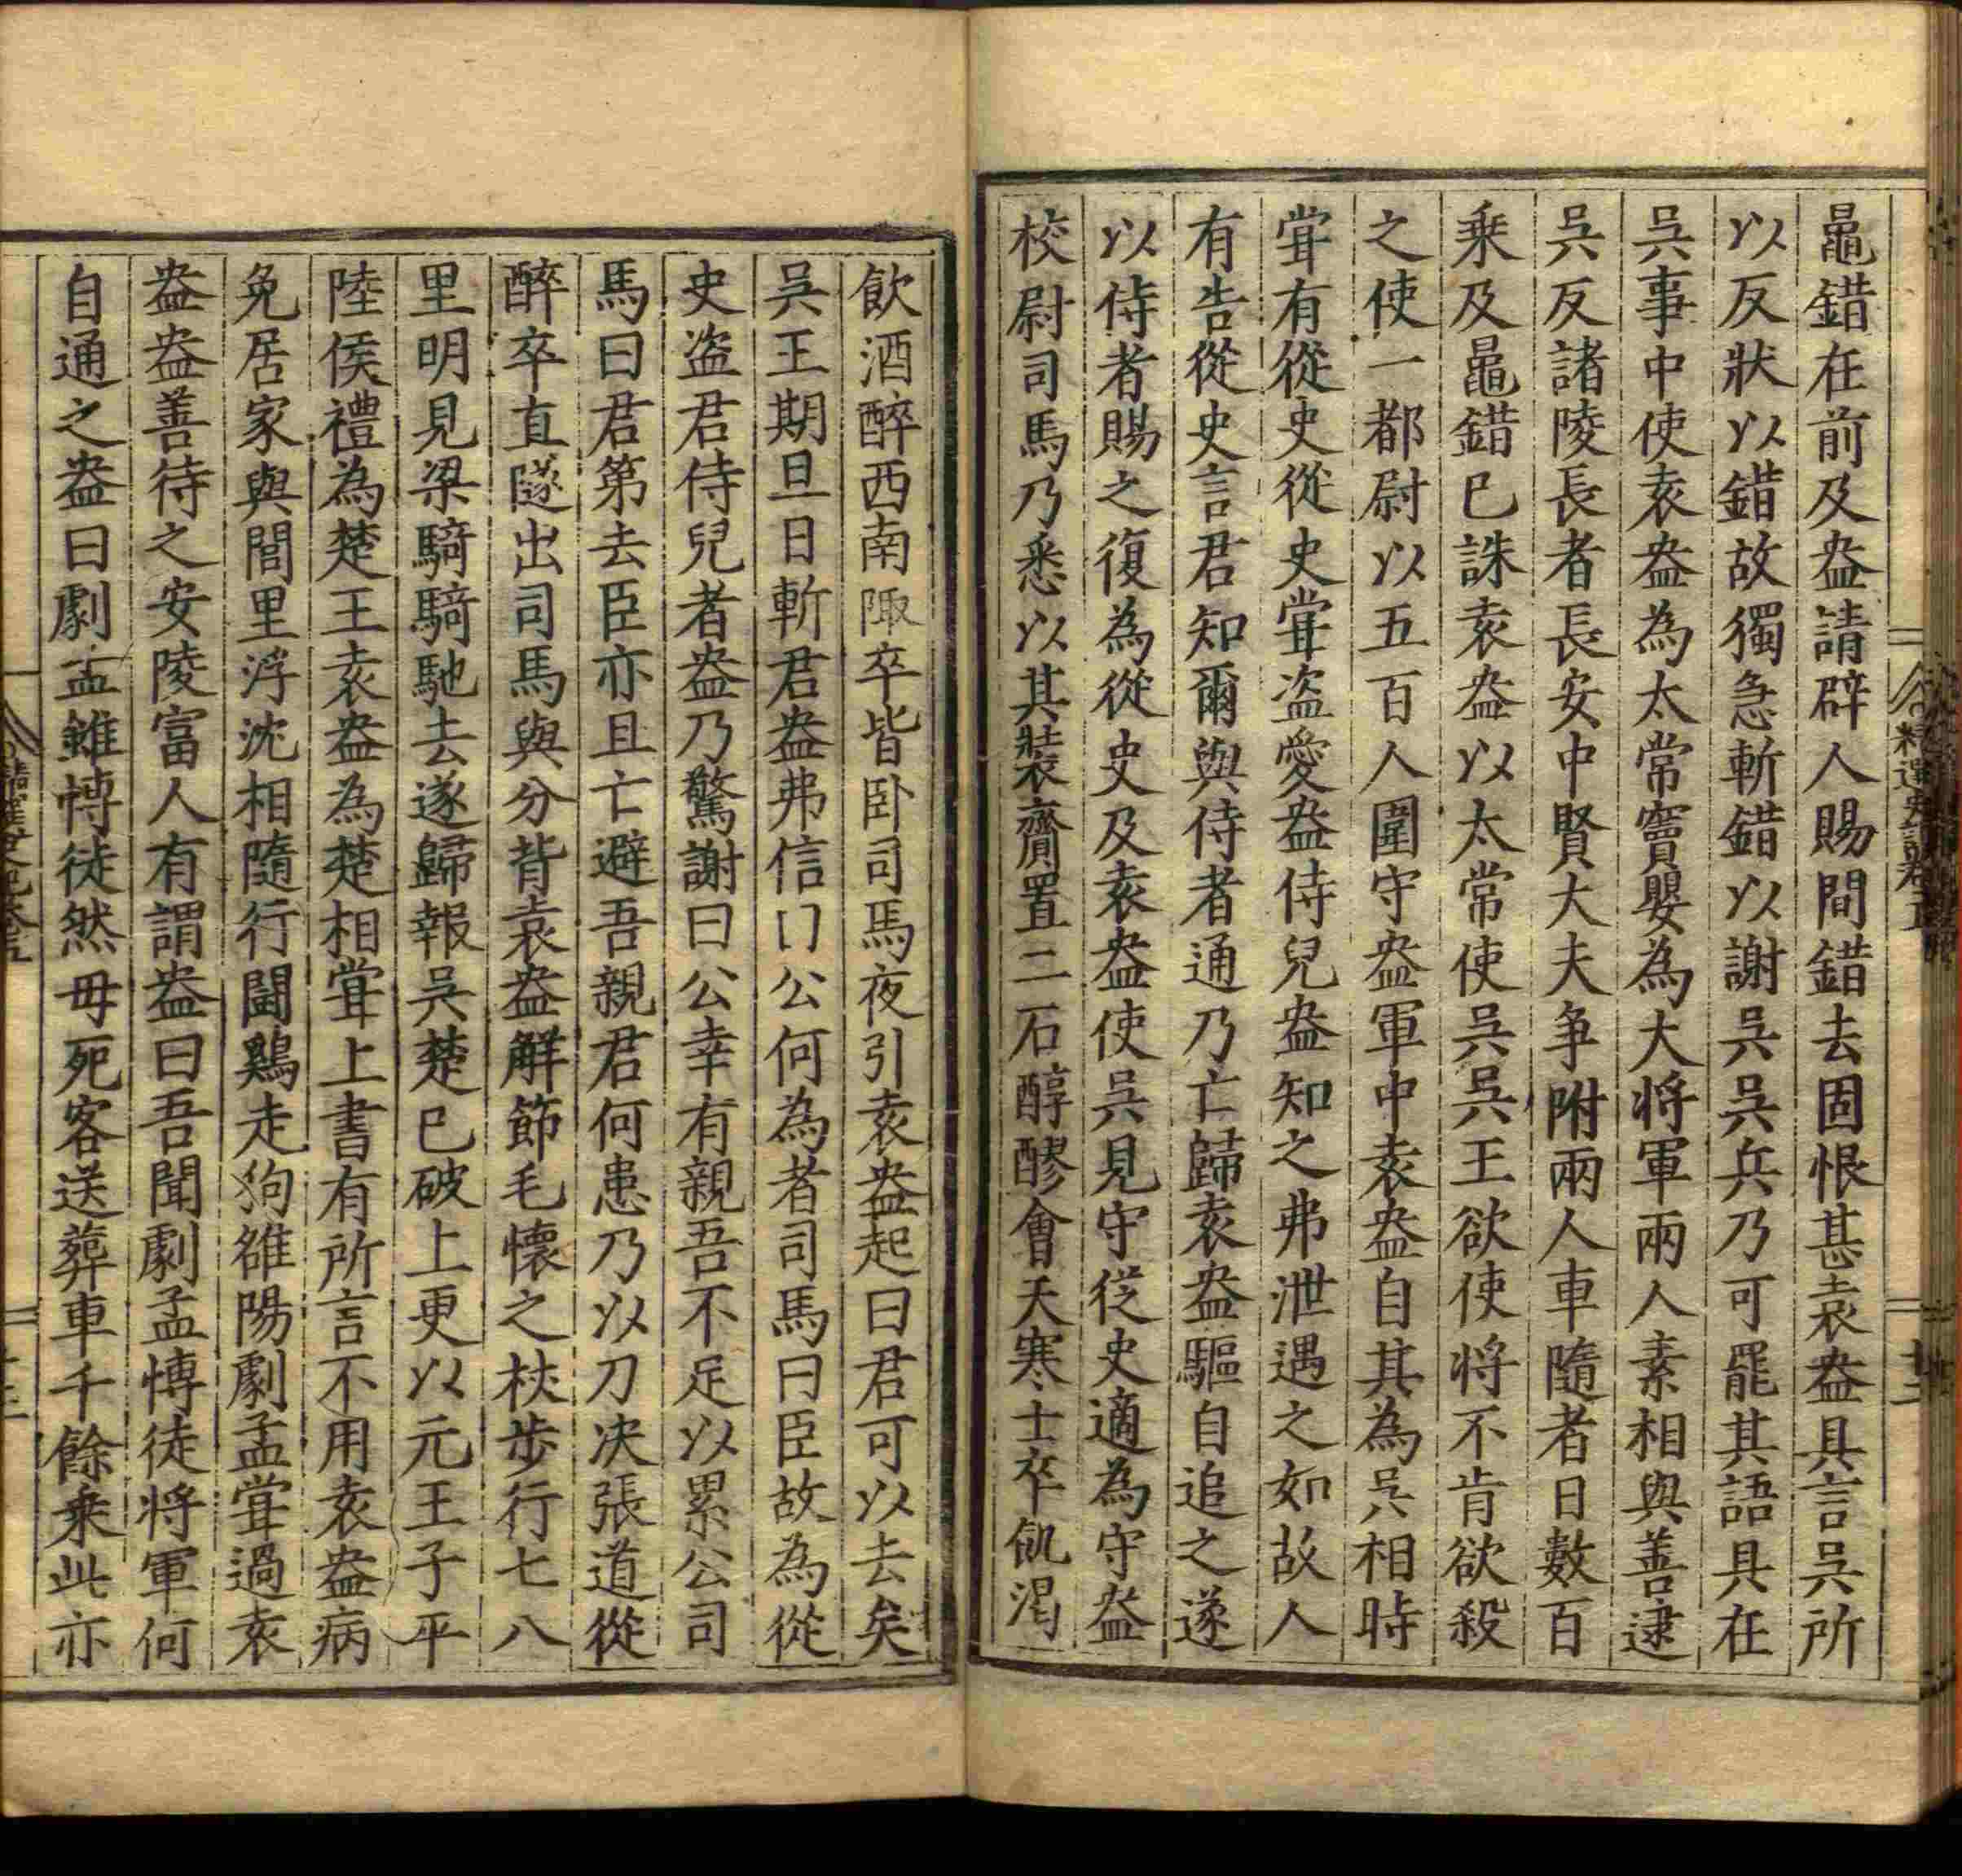 鼂錯在前及盎請辟人賜間錯去固恨甚袁盎具言吳所
以反狀以錯故獨急斬錯以謝吳吳兵乃可罷其語具在
吳事中使袁盎為太常竇嬰為大将軍兩人素相與善逮
吳反諸陵長者長安中賢大夫争附兩人車隨者日數百
乗及鼂錯已誅袁盎以太常使吳吳王欲使将不肯欲殺
之使一都尉以五百人圍守盎軍中袁盎自其為吳相時
甞有從史從史甞盜愛盎侍兒盎知之弗泄遇之如故人
有告從史言君知爾與侍者通乃亡歸袁盎驅自追之遂
以侍者賜之復為從史及袁盎使吳見守從史適為守盎
校尉司馬乃悉以其裝齎置二石醇醪會天寒士卒飢渴
飲酒醉西南陬卒皆卧司馬夜引袁盎起曰君可以去矣
吳王期旦日斬君盎弗信曰公何為者司馬曰臣故為從
史盜君侍兒者盎乃驚謝曰公幸有親吾不足以累公司
馬曰君第去臣亦且亡避吾親君何患乃以刀决張道從
醉卒直隧出司馬與分背袁盎解節毛懷之杖步行七八
里明見梁騎騎馳去遂歸報吳楚已破上更以元王子平
陸侯禮為楚王袁盎為楚相甞上書有所言不用袁盎病
免居家與閭里浮沈相隨行鬪鷄走狗雒陽劇孟甞過袁
盎盎善待之安陵富人有謂盎曰吾聞劇孟愽徒将軍何
自通之盎曰劇孟雖愽徒然毋死客送葬車千餘乗此亦
精選史記卷五
十二